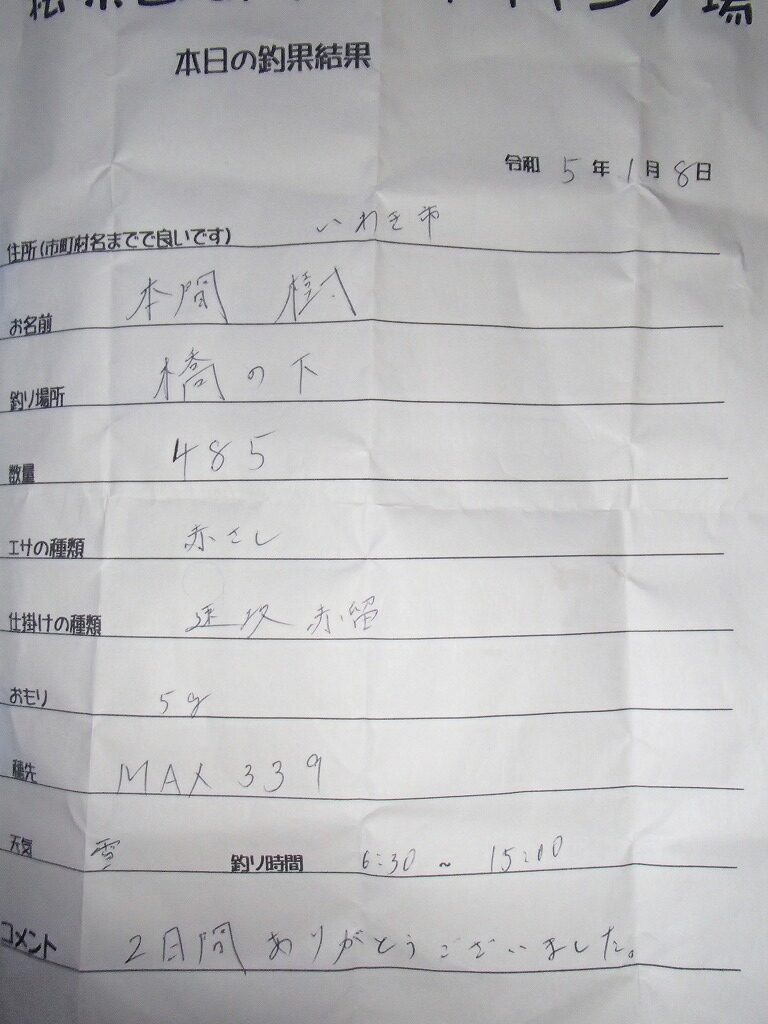 本日の釣果結果
令和 5 年 1 月 8 日
住所(市町村名までで良いです) いわき市
お名前 本間 樹
釣り場所 橋の下
数量 485
エサの種類 赤さし
仕掛けの種類 速攻 赤留
おもり 5g
穂先 MAX 339
天気 雪 釣り時間 6:30 ~ 15:00
コメント 2日間ありがとうございました。